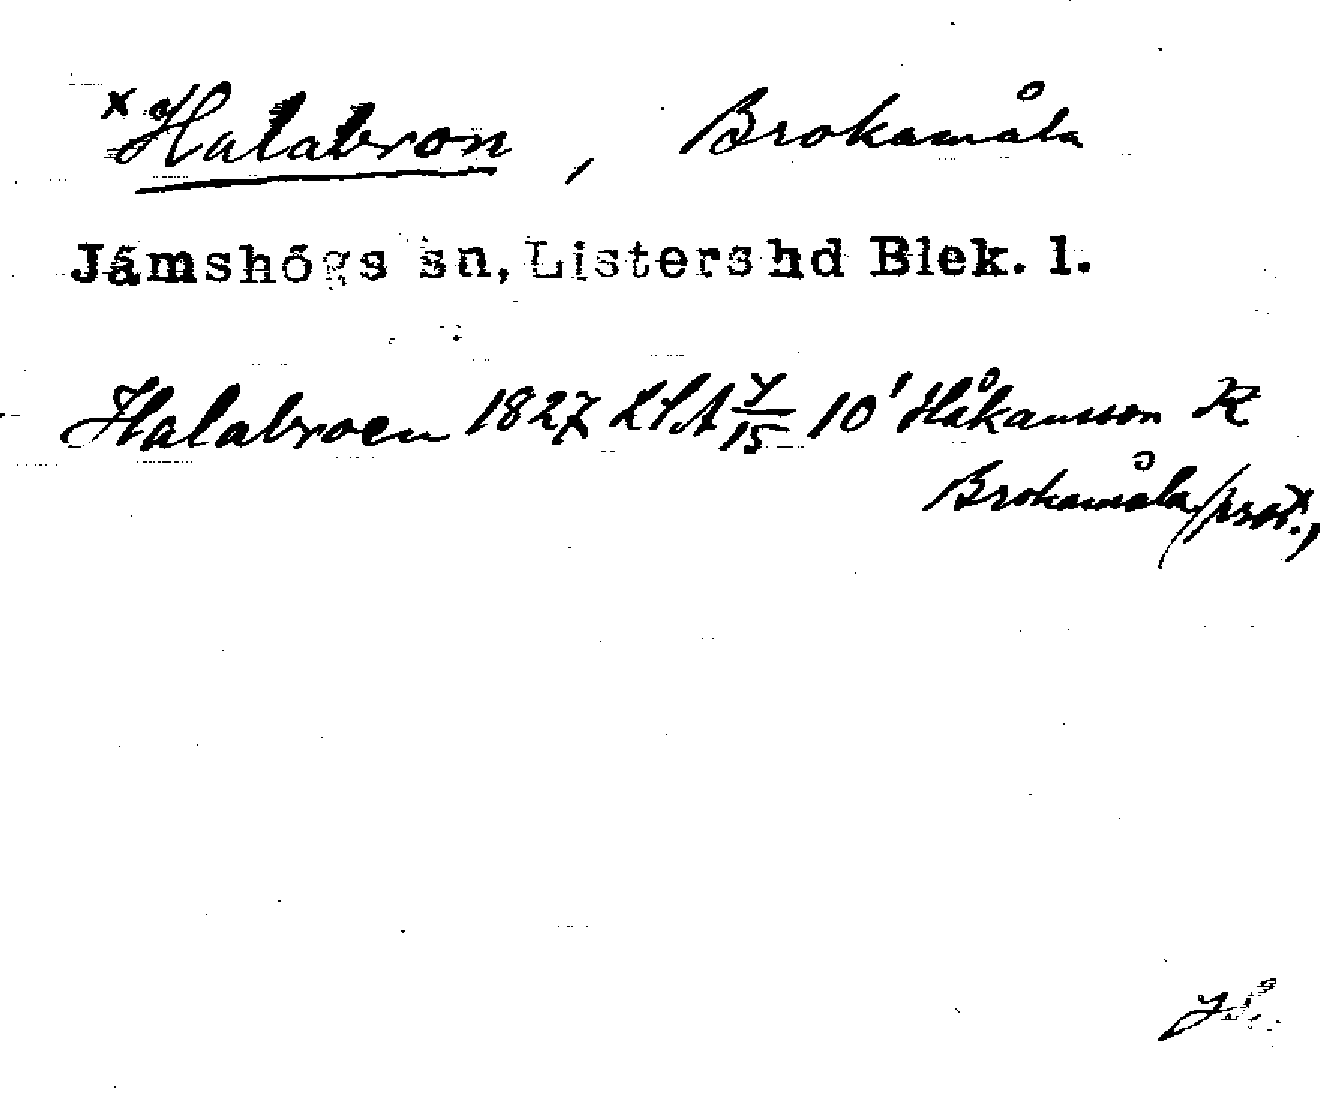 x Halabron, Brokamåla
Jämshögs sn, Listers hd Blek. l.
Halabroen 1827 LSA Y/15 10' Håkansson R
Brokamåla /prot.,